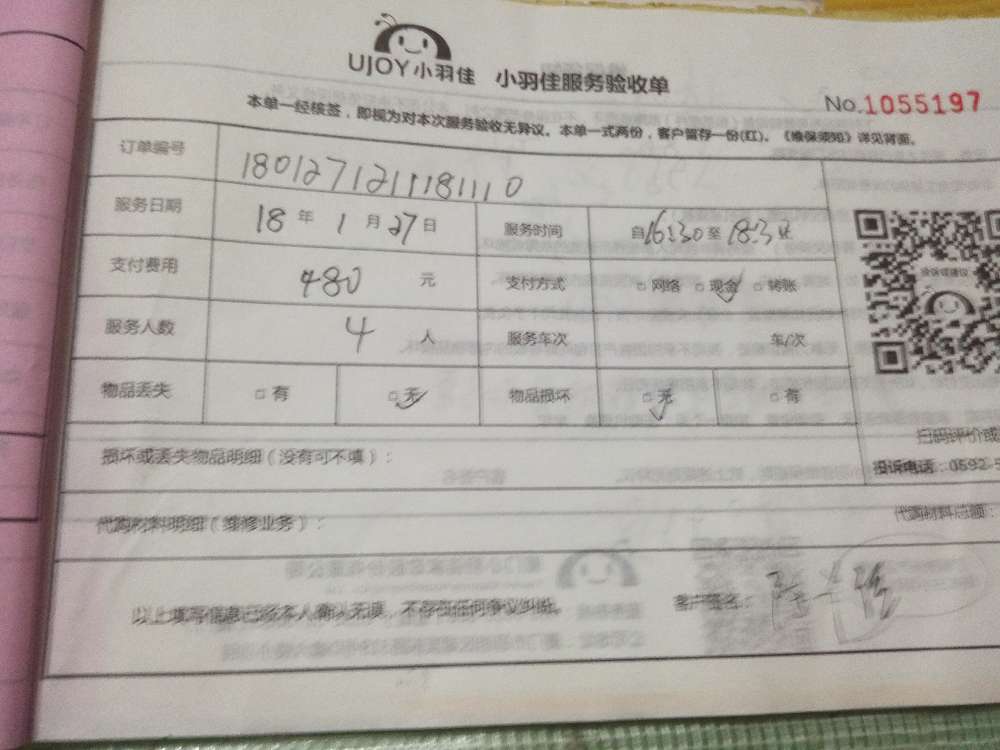 UJOY小羽佳 小羽佳服务验收单
No.1055197
本单一经核签，即视为对本次服务验收无异议。本单一式两份，客户留存一份(红)。《维保须知》详见背面。
订单编号 180127121118111 0
服务日期 18 年 1 月 27 日 服务时间 自16:30至18:3
支付费用 480 元 支付方式 □ 网络 □ 现金 □ 转账
服务人数 4 人 服务车次 车/次
物品丢失 □ 有 □ 无 物品损坏 □ 无 □ 有
投诉或建议
扫码评价或
损坏或丢失物品明细（没有可不填）：
投诉电话：0592-5
代购材料明细（维修业务）：
代购材料总额：
以上填写信息已经本人确认无误，不存在任何争议纠纷。 客户签名：